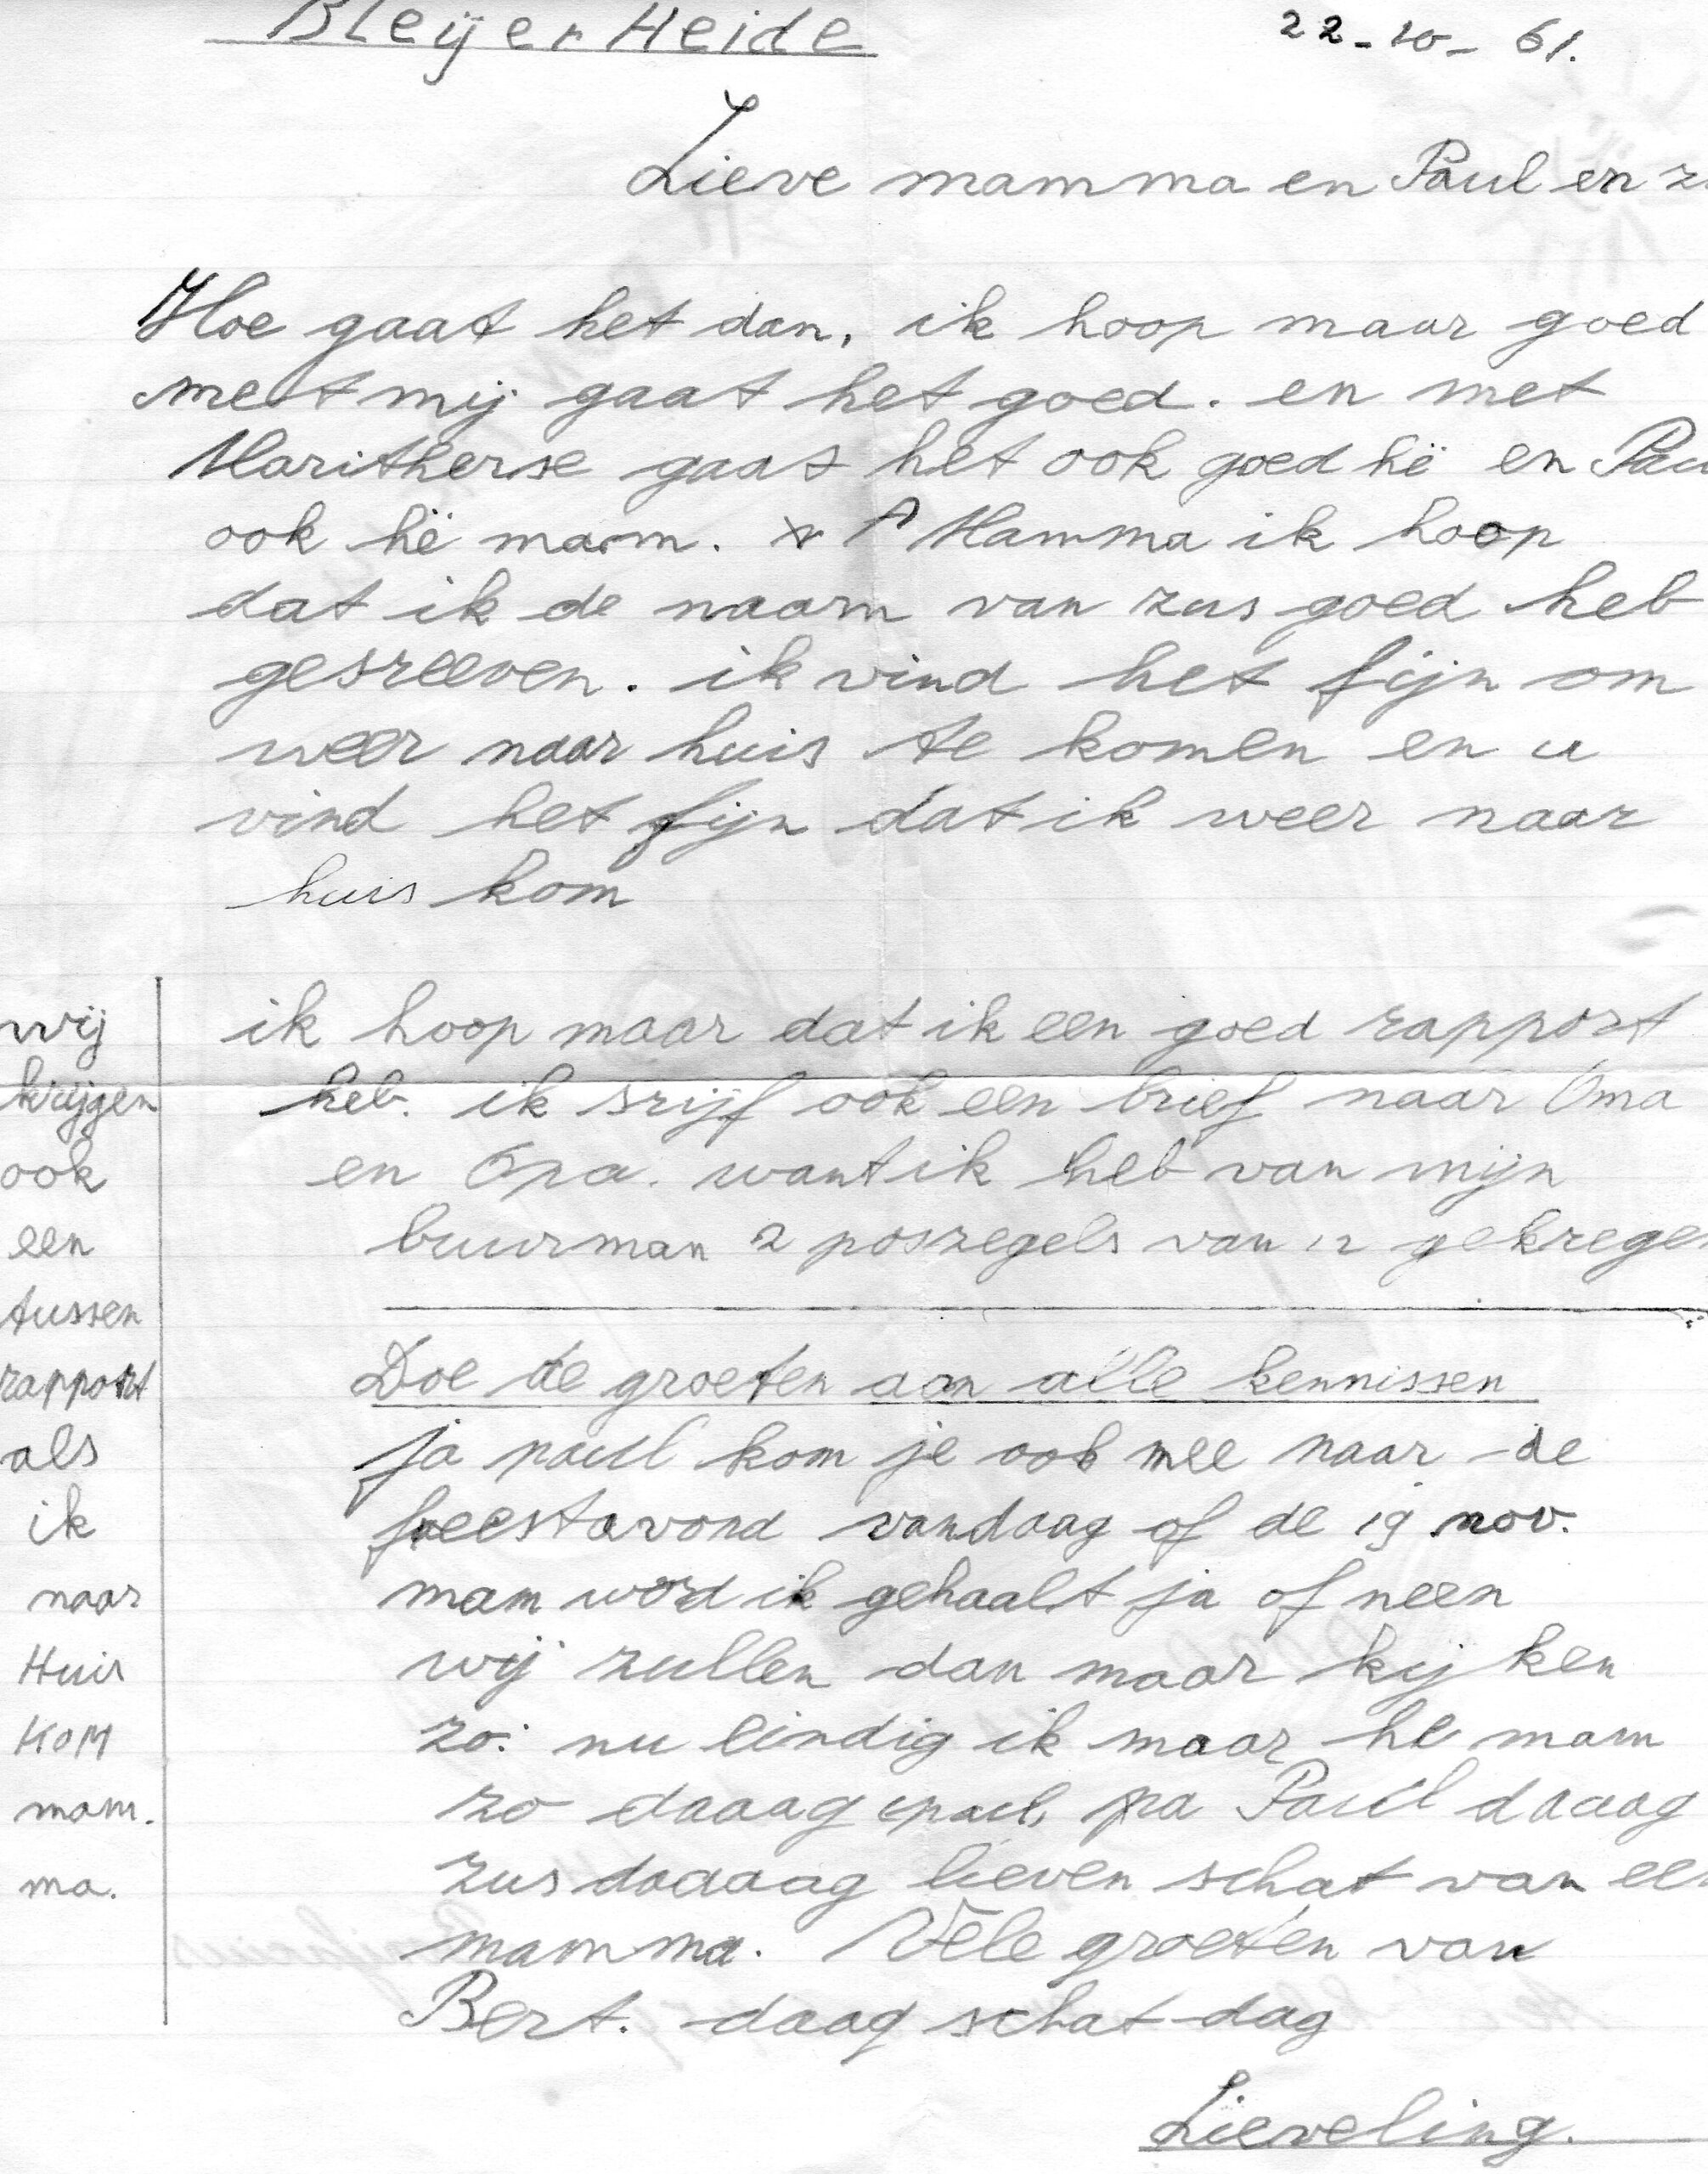 Bleijer Heide 22-10-61.
Lieve mamma en Paul en
Hoe gaat het dan, ik hoop maar goed
met mij gaat het goed. en met
Maritherse gaat het ook goed hë en
ook hë mam. Mamma ik hoop
dat ik de naam van zus goed heb
gesreeven. ik vind het fijn om
weer naar huis te komen en u
vind het fijn dat ik weer naar
huis kom
ik hoop maar dat ik een goed rapport
heb. ik srijf ook een brief naar Oma
en Opa. want ik heb van mijn
buurman 2 poszegels van 12 gekregen
Doe de groeten aan alle kennissen
ja paul kom je ook mee naar de
feestavond vandaag of de 19 nov.
mam word ik gehaalt ja of neen
wij zullen dan maar kijken
zo: nu eindig ik maar he mam
zo daaag pa Paul daaag
zus daaaag lieven schat van
mamma. Vele groeten van
Bert. daag schat dag
Lieveling.
wij
krijgen
ook
een
tussen
rapport
als
ik
naar
Huis
KOM
mam.
ma.